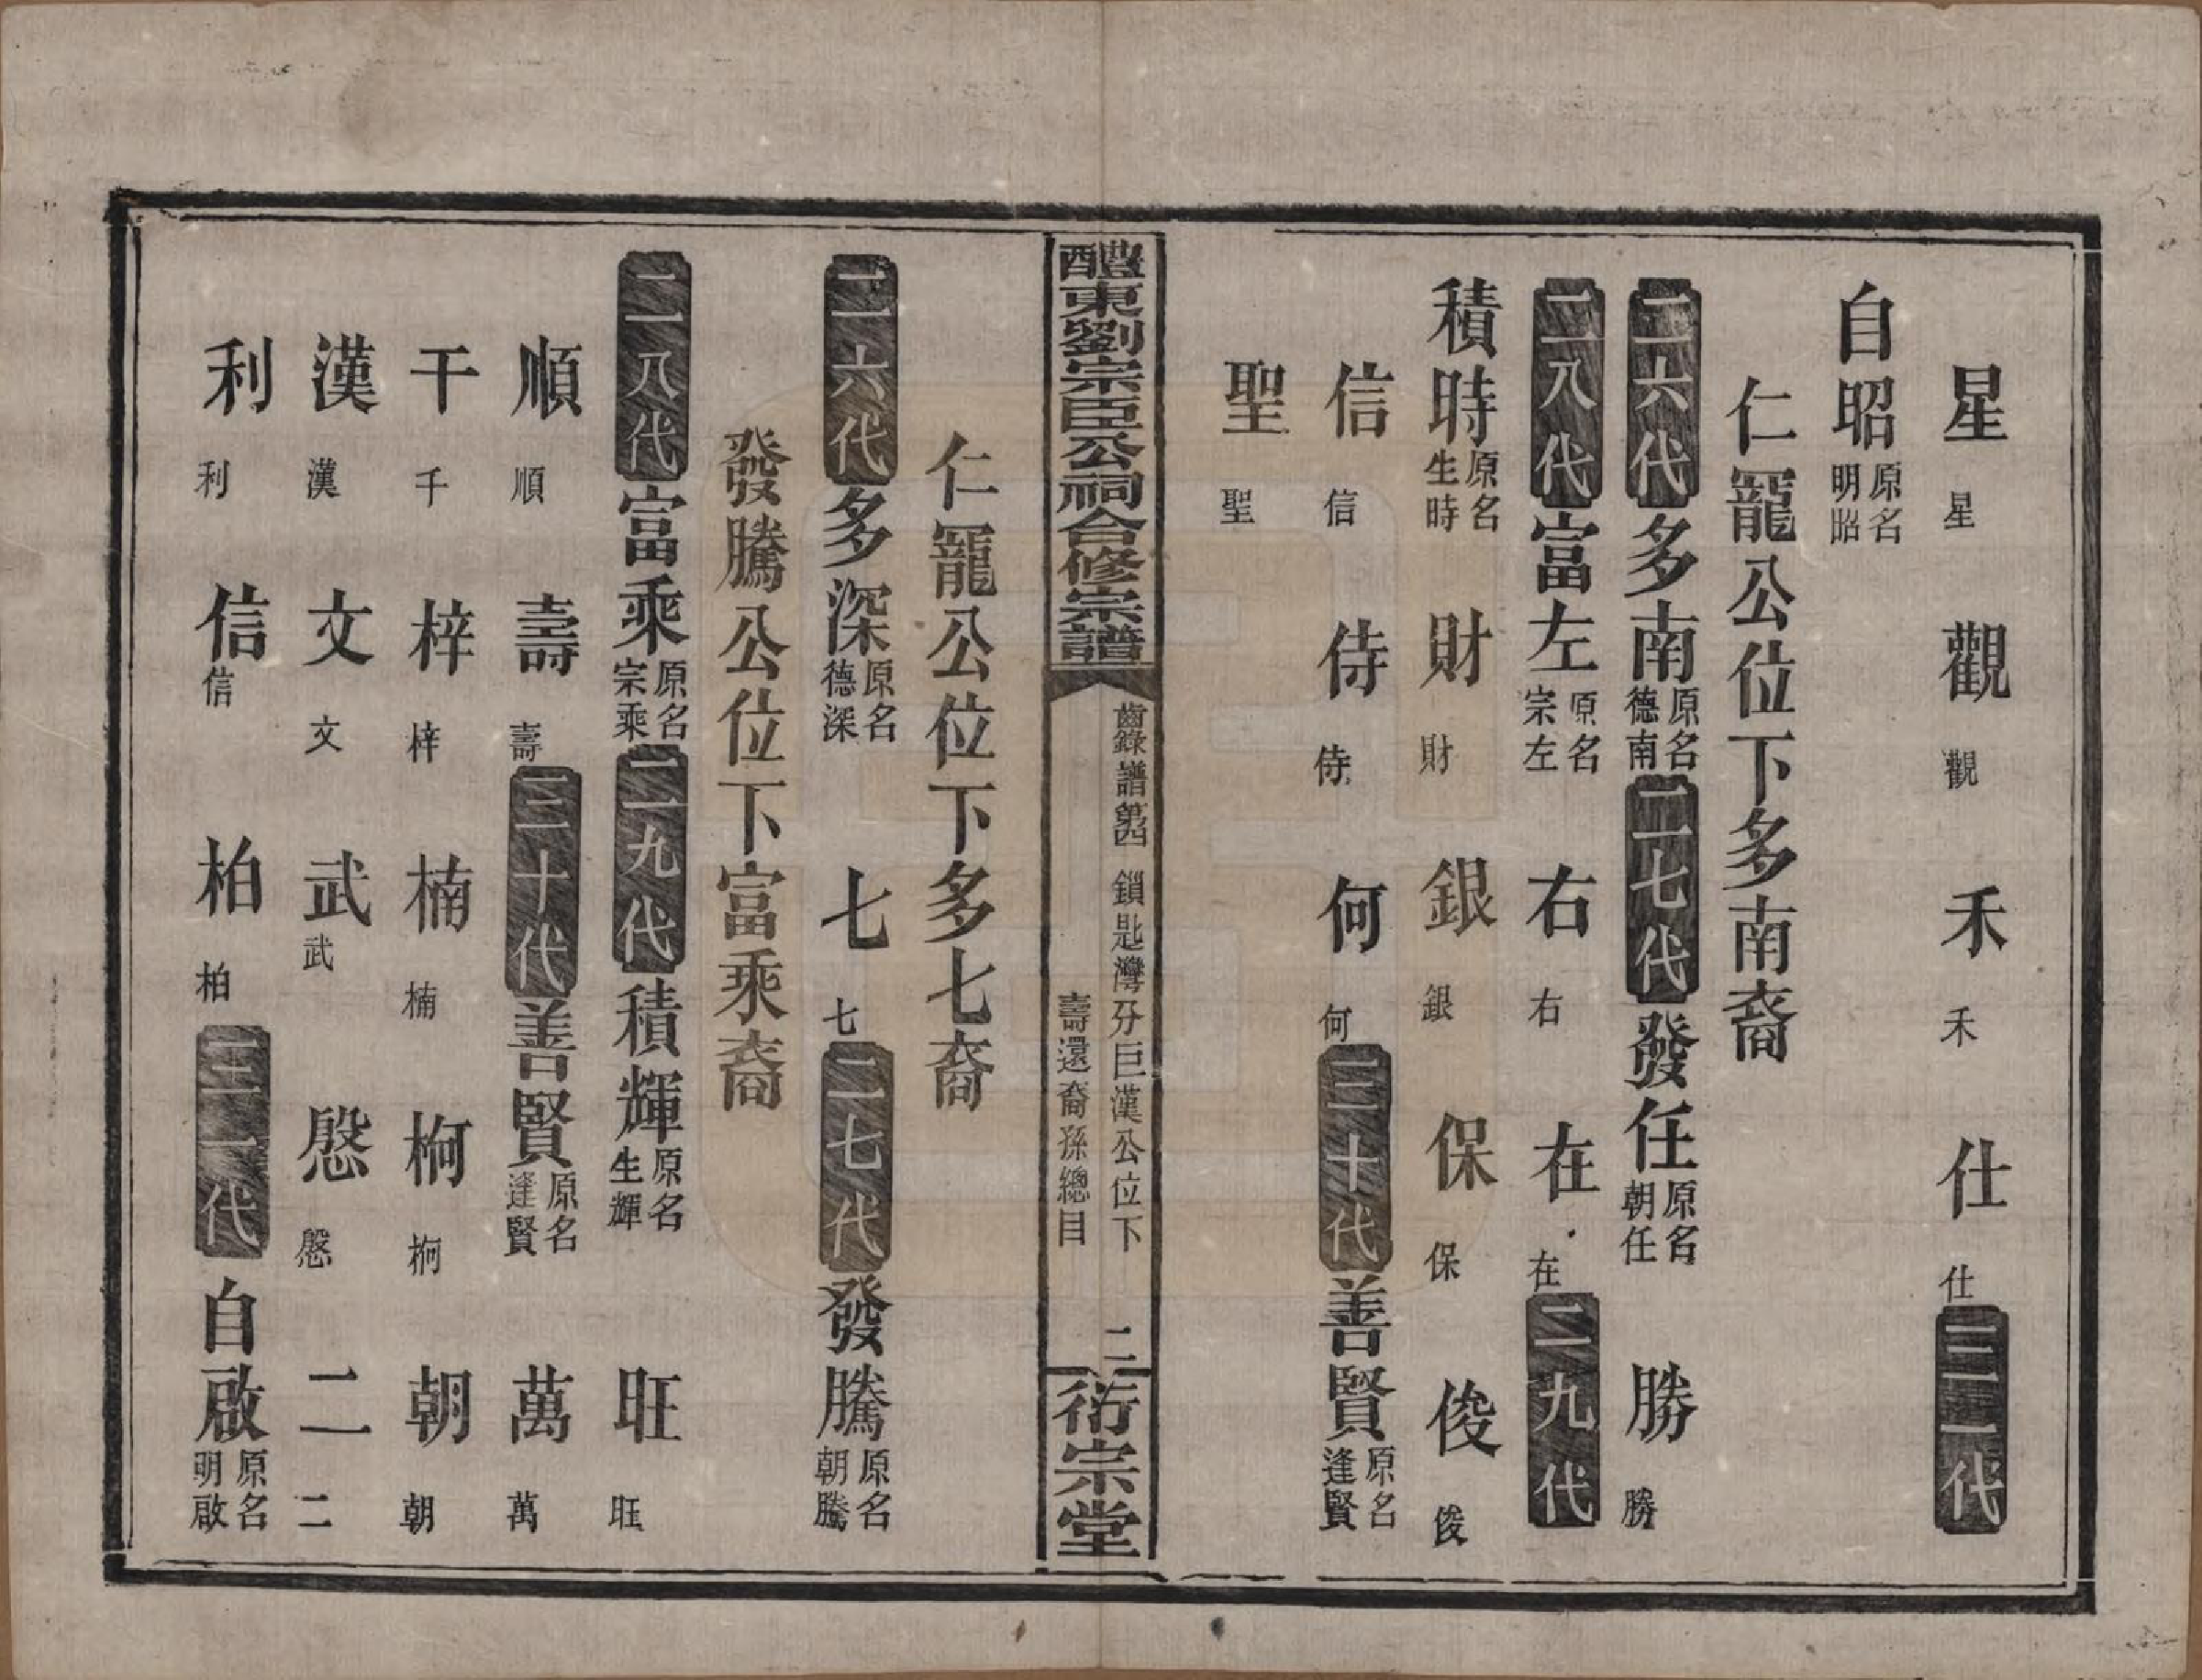 星 星 觀 觀 禾 禾 仕 仕 三一代
自昭 原名明昭
仁寵公位下多南裔
二六代 多南 原名德南 二七代 發任 原名朝任 勝 勝
二八代 富左 原名宗左 右 右 在 在 二九代
積時 原名生時 財 財 銀 銀 保 保 俊 俊
信 信 侍 侍 何 何 三十代 善賢 原名逢賢
聖 聖
醴東劉宗臣公祠合修宗譜
齒錄譜第四 鎖匙灣分巨漢公位下
壽還裔孫總目
二
衍宗堂
仁寵公位下多七裔
二六代 多深 原名德深 七 七 二七代 發騰 原名朝騰
發騰公位下富乘裔
二八代 富乘 原名宗乘 二九代 積輝 原名生輝 旺 旺
順 順 壽 壽 三十代 善賢 原名逢賢 萬 萬
干 千 梓 梓 楠 楠 柯 柯 朝 朝
漢 漢 文 文 武 武 慇 慇 二 二
利 利 信 信 柏 柏 三一代 自啟 原名明啟